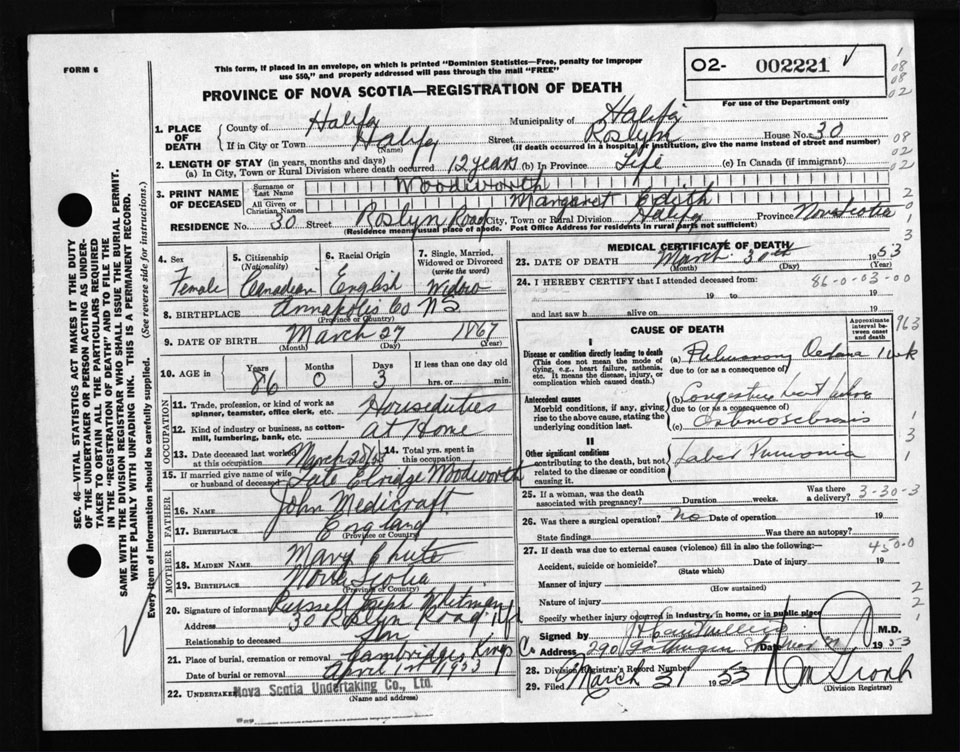 FORM 6
This form, if placed in an envelope, on which is printed "Dominion Statistics—Free, penalty for improper
use $50," and properly addressed will pass through the mail "FREE"
O2- 002221
For use of the Department only
PROVINCE OF NOVA SCOTIA—REGISTRATION OF DEATH
1. PLACE OF DEATH
County of Halifax Municipality of Halifax
If in City or Town Halifax (Name) Street Roslyn House No. 30
(If death occurred in a hospital or institution, give the name instead of street and number)
2. LENGTH OF STAY (in years, months and days)
(a) In City, Town or Rural Division where death occurred 12 years (b) In Province Life (c) In Canada (if immigrant)
3. PRINT NAME OF DECEASED
Surname or Last Name Woodworth
All Given or Christian Names Margaret Edith
RESIDENCE No. 30 Street Roslyn Road City, Town or Rural Division Halifax Province Nova Scotia
(Residence means usual place of abode. Post Office Address for residents in rural parts not sufficient)
4. Sex Female
5. Citizenship (Nationality) Canadian
6. Racial Origin English
7. Single, Married, Widowed or Divorced (write the word) Widow
8. BIRTHPLACE Annapolis Co NS
(Province or Country)
9. DATE OF BIRTH March 27 1867
(Month) (Day) (Year)
10. AGE in Years 86 Months 0 Days 3 If less than one day old hrs. or min.
OCCUPATION
11. Trade, profession, or kind of work as spinner, teamster, office clerk, etc. Houseduties
12. Kind of industry or business, as cotton-mill, lumbering, bank, etc. At Home
13. Date deceased last worked at this occupation March 28/53
14. Total yrs. spent in this occupation
15. If married give name of wife or husband of deceased Late Elridge Woodworth
FATHER
16. NAME John Medicraft
17. BIRTHPLACE England
(Province or Country)
MOTHER
18. MAIDEN NAME Mary Chute
19. BIRTHPLACE Nova Scotia
(Province or Country)
20. Signature of informant Russell Joseph Whitman
Address 30 Roslyn Road Hfx
Relationship to deceased Son
21. Place of burial, cremation or removal Cambridge, Kings Co
Date of burial or removal April 1st 1953
22. UNDERTAKER Nova Scotia Undertaking Co., Ltd.
(Name and address)
MEDICAL CERTIFICATE OF DEATH
23. DATE OF DEATH March 30th 1953
(Month) (Day) (Year)
24. I HEREBY CERTIFY that I attended deceased from:
86-0-03-00
19 to 19
and last saw h alive on 19
CAUSE OF DEATH
Approximate interval between onset and death
I
Disease or condition directly leading to death
(This does not mean the mode of dying, e.g., heart failure, asthenia, etc. It means the disease, injury, or complication which caused death.)
(a) Pulmonary Oedema 1 wk
due to (or as a consequence of)
Antecedent causes
Morbid conditions, if any, giving rise to the above cause, stating the underlying condition last.
(b) Congestive heart failure
due to (or as a consequence of)
(c)
II
Other significant conditions
contributing to the death, but not related to the disease or condition causing it.
Lobar Pneumonia
963
1
3
1
25. If a woman, was the death associated with pregnancy? Duration weeks. Was there a delivery? 3-30-3
26. Was there surgical operation? No Date of operation 19
State findings Was there an autopsy?
27. If death was due to external causes (violence) fill in also the following:—
450-0
Accident, suicide or homicide? Date of injury 19
(State which)
Manner of injury
(How sustained)
Nature of injury
Specify whether injury occurred in industry, in home, or in public place
2
2
1
Signed by M.D.
Address 290 Date 1953
28. Division Registrar's Record Number
29. Filed March 31 1953
(Division Registrar)
SEC. 46—VITAL STATISTICS ACT MAKES IT THE DUTY
OF THE UNDERTAKER OR PERSON ACTING AS UNDER-
TAKER TO OBTAIN ALL THE PARTICULARS REQUIRED
IN THE "REGISTRATION OF DEATH" AND TO FILE THE
SAME WITH THE DIVISION REGISTRAR WHO SHALL ISSUE THE BURIAL PERMIT.
WRITE PLAINLY WITH UNFADING INK. THIS IS A PERMANENT RECORD.
Every item of information should be carefully supplied. (See reverse side for instructions.)
1
08
08
02
08
02
02
2
0
1
3